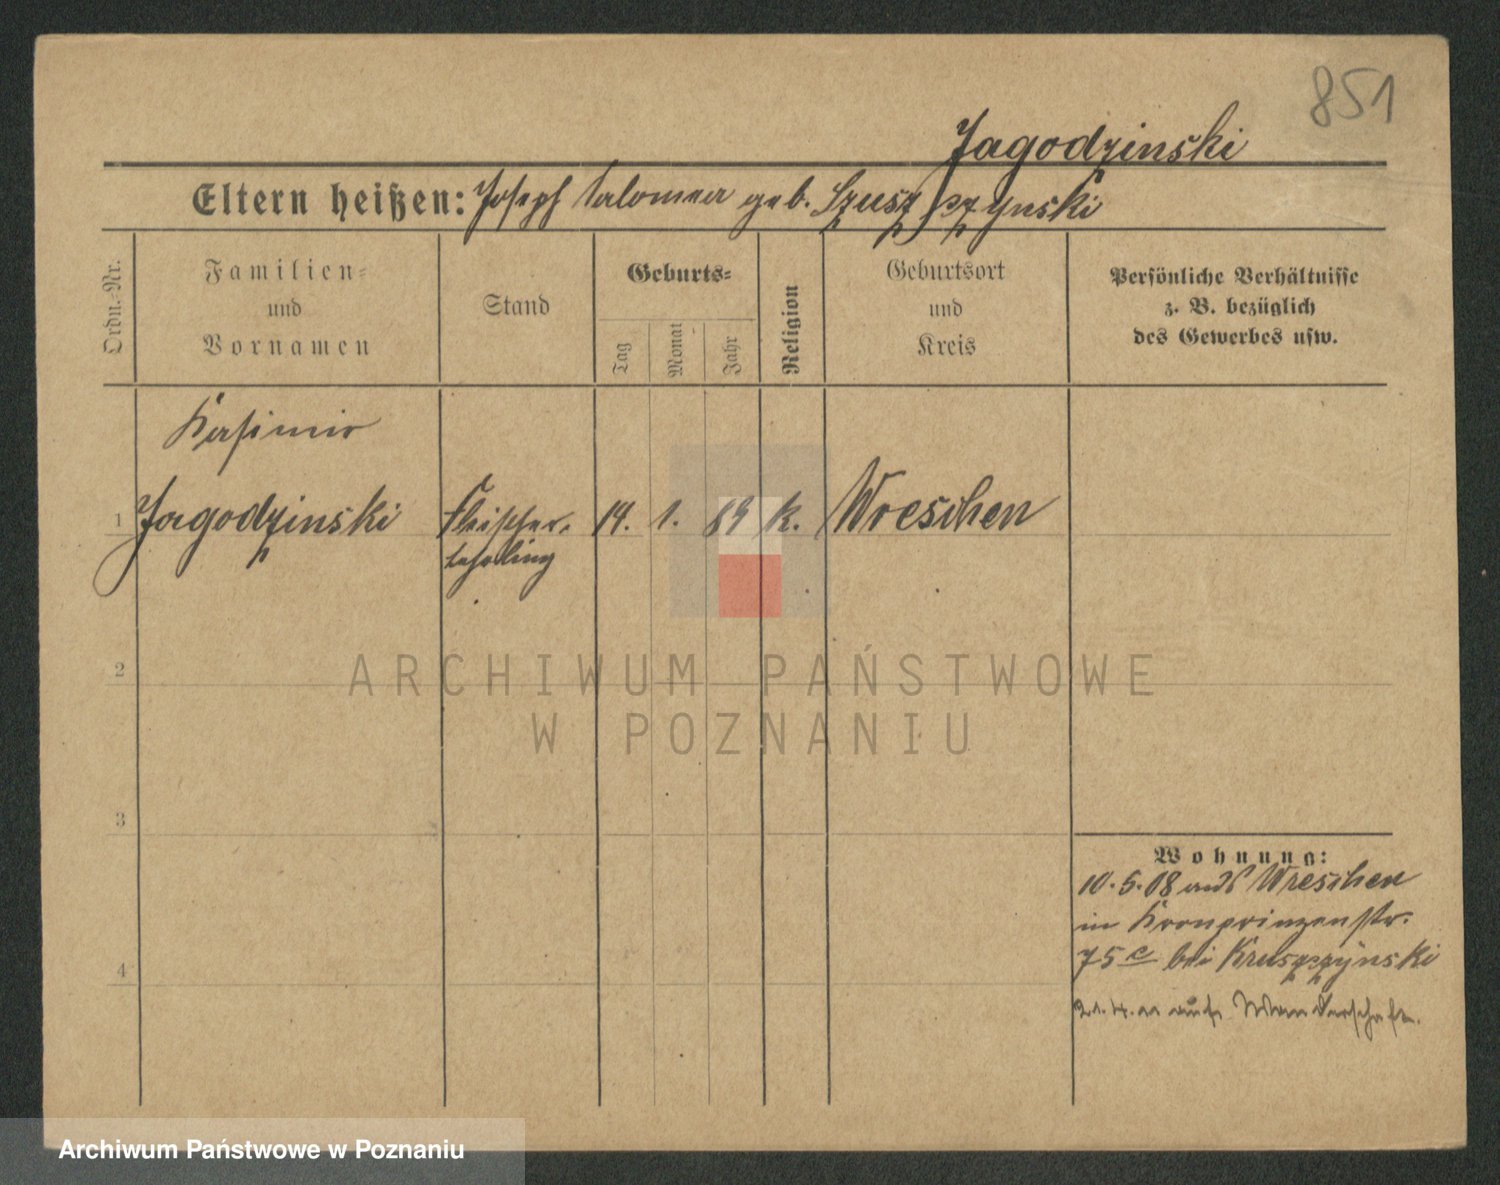 851
Jagodzinski
Eltern heißen: Joseph Salomea geb.
Ordn.-Nr.
Familien-
und
Vornamen
Stand
Geburts-
Tag
Monat
Jahr
Religion
Geburtsort
und
Kreis
Persönliche Verhältnisse
z. B. bezüglich
des Gewerbes usw.
Kasimir
1 Jagodzinski Fleischer- 14. 1. 89 k. Wreschen
lehrling
2
ARCHIWUM PAŃSTWOWE
W POZNANIU
3
Wohnung:
10.5.08 aus Wreschen
in Kronprinzenstr.
75c bei Kruszczynski
4
auf Wanderschaft.
Archiwum Państwowe w Poznaniu